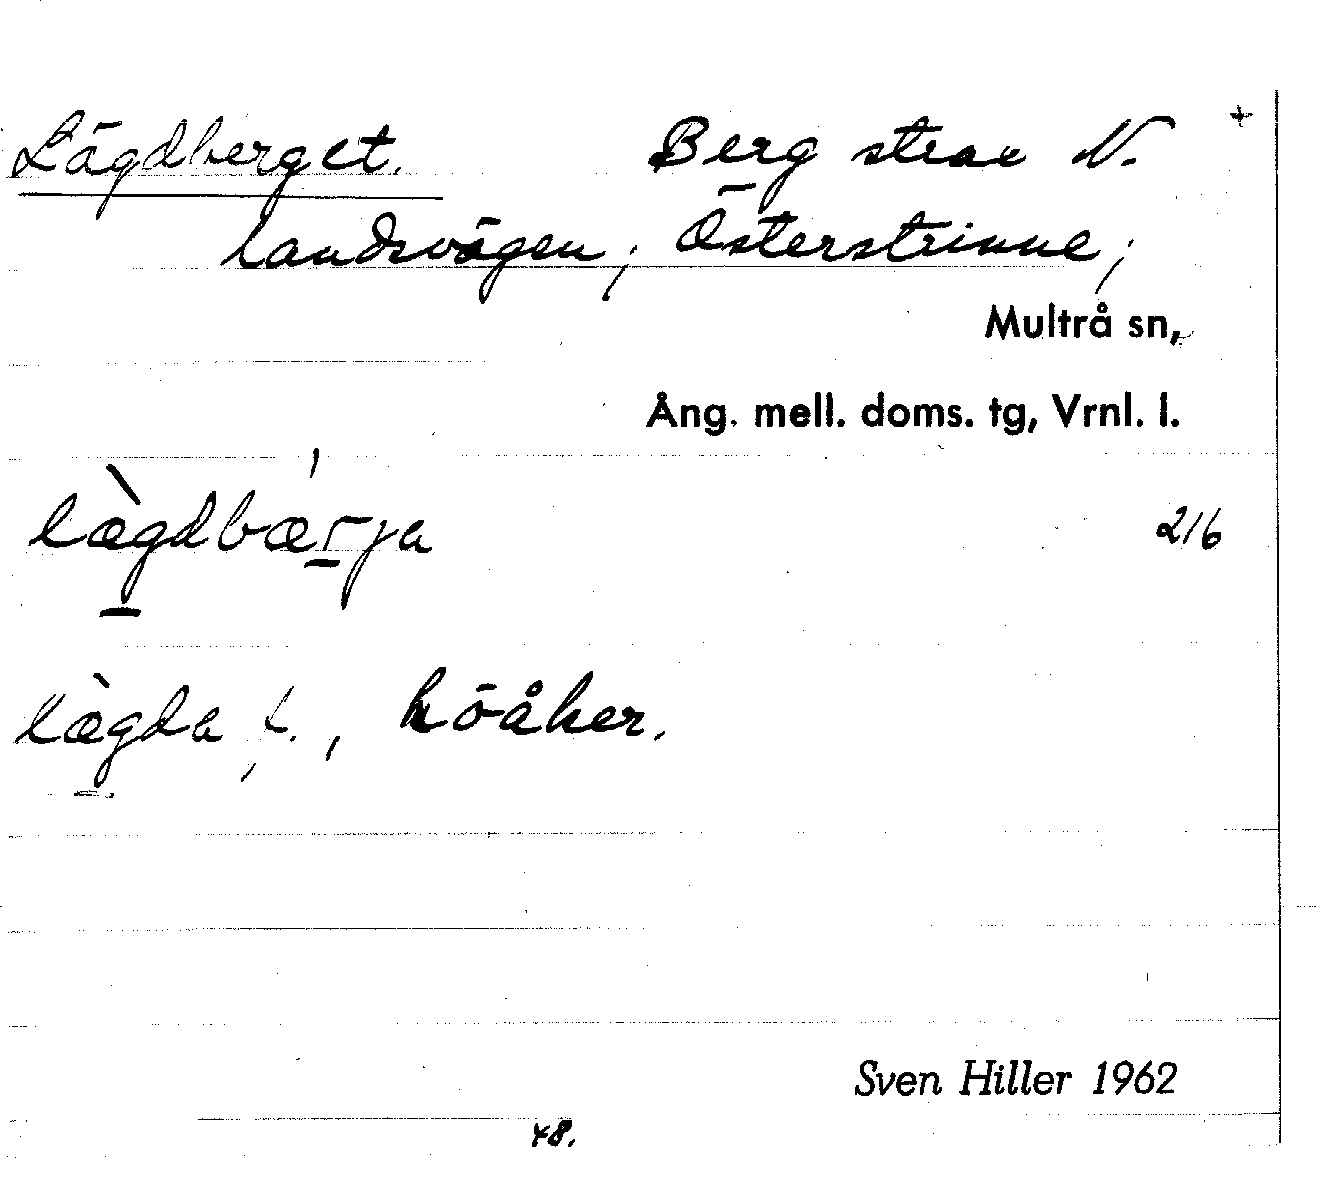 Lägdberget. Berg strax N. +
landsvägen; Österstrinne;
Multrå sn,
Ång. mell. doms. tg, Vrnl. l.
lægdbærja 216
lægda f., höåker.
Sven Hiller 1962
48.